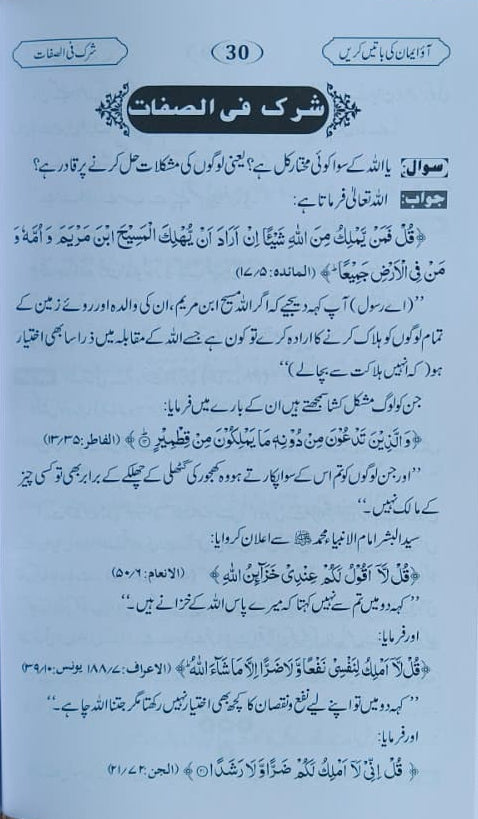 آؤ ایمان کی باتیں کریں 30 شرک فی الصفات
شرک فی الصفات
سوال: یا اللہ کے سوا کوئی مختار کل ہے؟ یعنی لوگوں کی مشکلات حل کرنے پر قادر ہے؟
جواب: اللہ تعالیٰ فرماتا ہے:
﴿قُلْ فَمَنْ يَّمْلِكُ مِنَ اللّٰهِ شَيْـًٔا اِنْ اَرَادَ اَنْ يُّهْلِكَ الْمَسِيْحَ ابْنَ مَرْيَمَ وَ اُمَّهٗ وَ
مَنْ فِی الْاَرْضِ جَمِيْعًا ؕ﴾ (المائدہ: ۱۷/۵)
’’(اے رسول) آپ کہہ دیجیے کہ اگر اللہ مسیح ابن مریم، ان کی والدہ اور روئے زمین کے
تمام لوگوں کو ہلاک کرنے کا ارادہ کرے تو کون ہے جسے اللہ کے مقابلہ میں ذرا سا بھی اختیار
ہو (کہ انہیں ہلاکت سے بچالے)‘‘
جن کو لوگ مشکل کشا سمجھتے ہیں ان کے بارے میں فرمایا:
﴿وَ الَّذِيْنَ تَدْعُوْنَ مِنْ دُوْنِهٖ مَا يَمْلِكُوْنَ مِنْ قِطْمِيْرٍ﴾ (الفاطر: ۱۳/۳۵)
’’اور جن لوگوں کو تم اس کے سوا پکارتے ہو وہ کھجور کی گٹھلی کے چھلکے کے برابر بھی تو کسی چیز
کے مالک نہیں۔‘‘
سید البشر امام الانبیاء محمد ﷺ سے اعلان کروایا:
﴿قُلْ لَّاۤ اَقُوْلُ لَكُمْ عِنْدِیْ خَزَآىِٕنُ اللّٰهِ ﴾ (الانعام: ۵۰/۶)
’’کہہ دو میں تم سے نہیں کہتا کہ میرے پاس اللہ کے خزانے ہیں۔‘‘
اور فرمایا:
﴿قُلْ لَّاۤ اَمْلِكُ لِنَفْسِیْ نَفْعًا وَّلَا ضَرًّا اِلَّا مَا شَآءَ اللّٰهُ ؕ﴾ (الاعراف: ۱۸۸/۷ یونس: ۳۹/۱۰)
’’کہہ دو میں تو اپنے لیے نفع و نقصان کا کچھ بھی اختیار نہیں رکھتا مگر جتنا اللہ چاہے۔‘‘
اور فرمایا:
﴿ قُلْ اِنِّیْ لَاۤ اَمْلِكُ لَكُمْ ضَرًّا وَّ لَا رَشَدًا﴾ (الجن: ۲۱/۷۲)